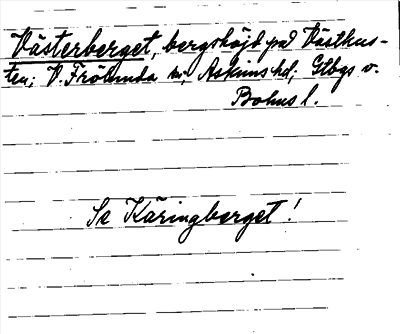 Västerberget, bergshöjd på Västkus-
ten; V. Frölunda s:n, Askims hd; Gtbgs o.
Bohus l.
Se Käringberget!